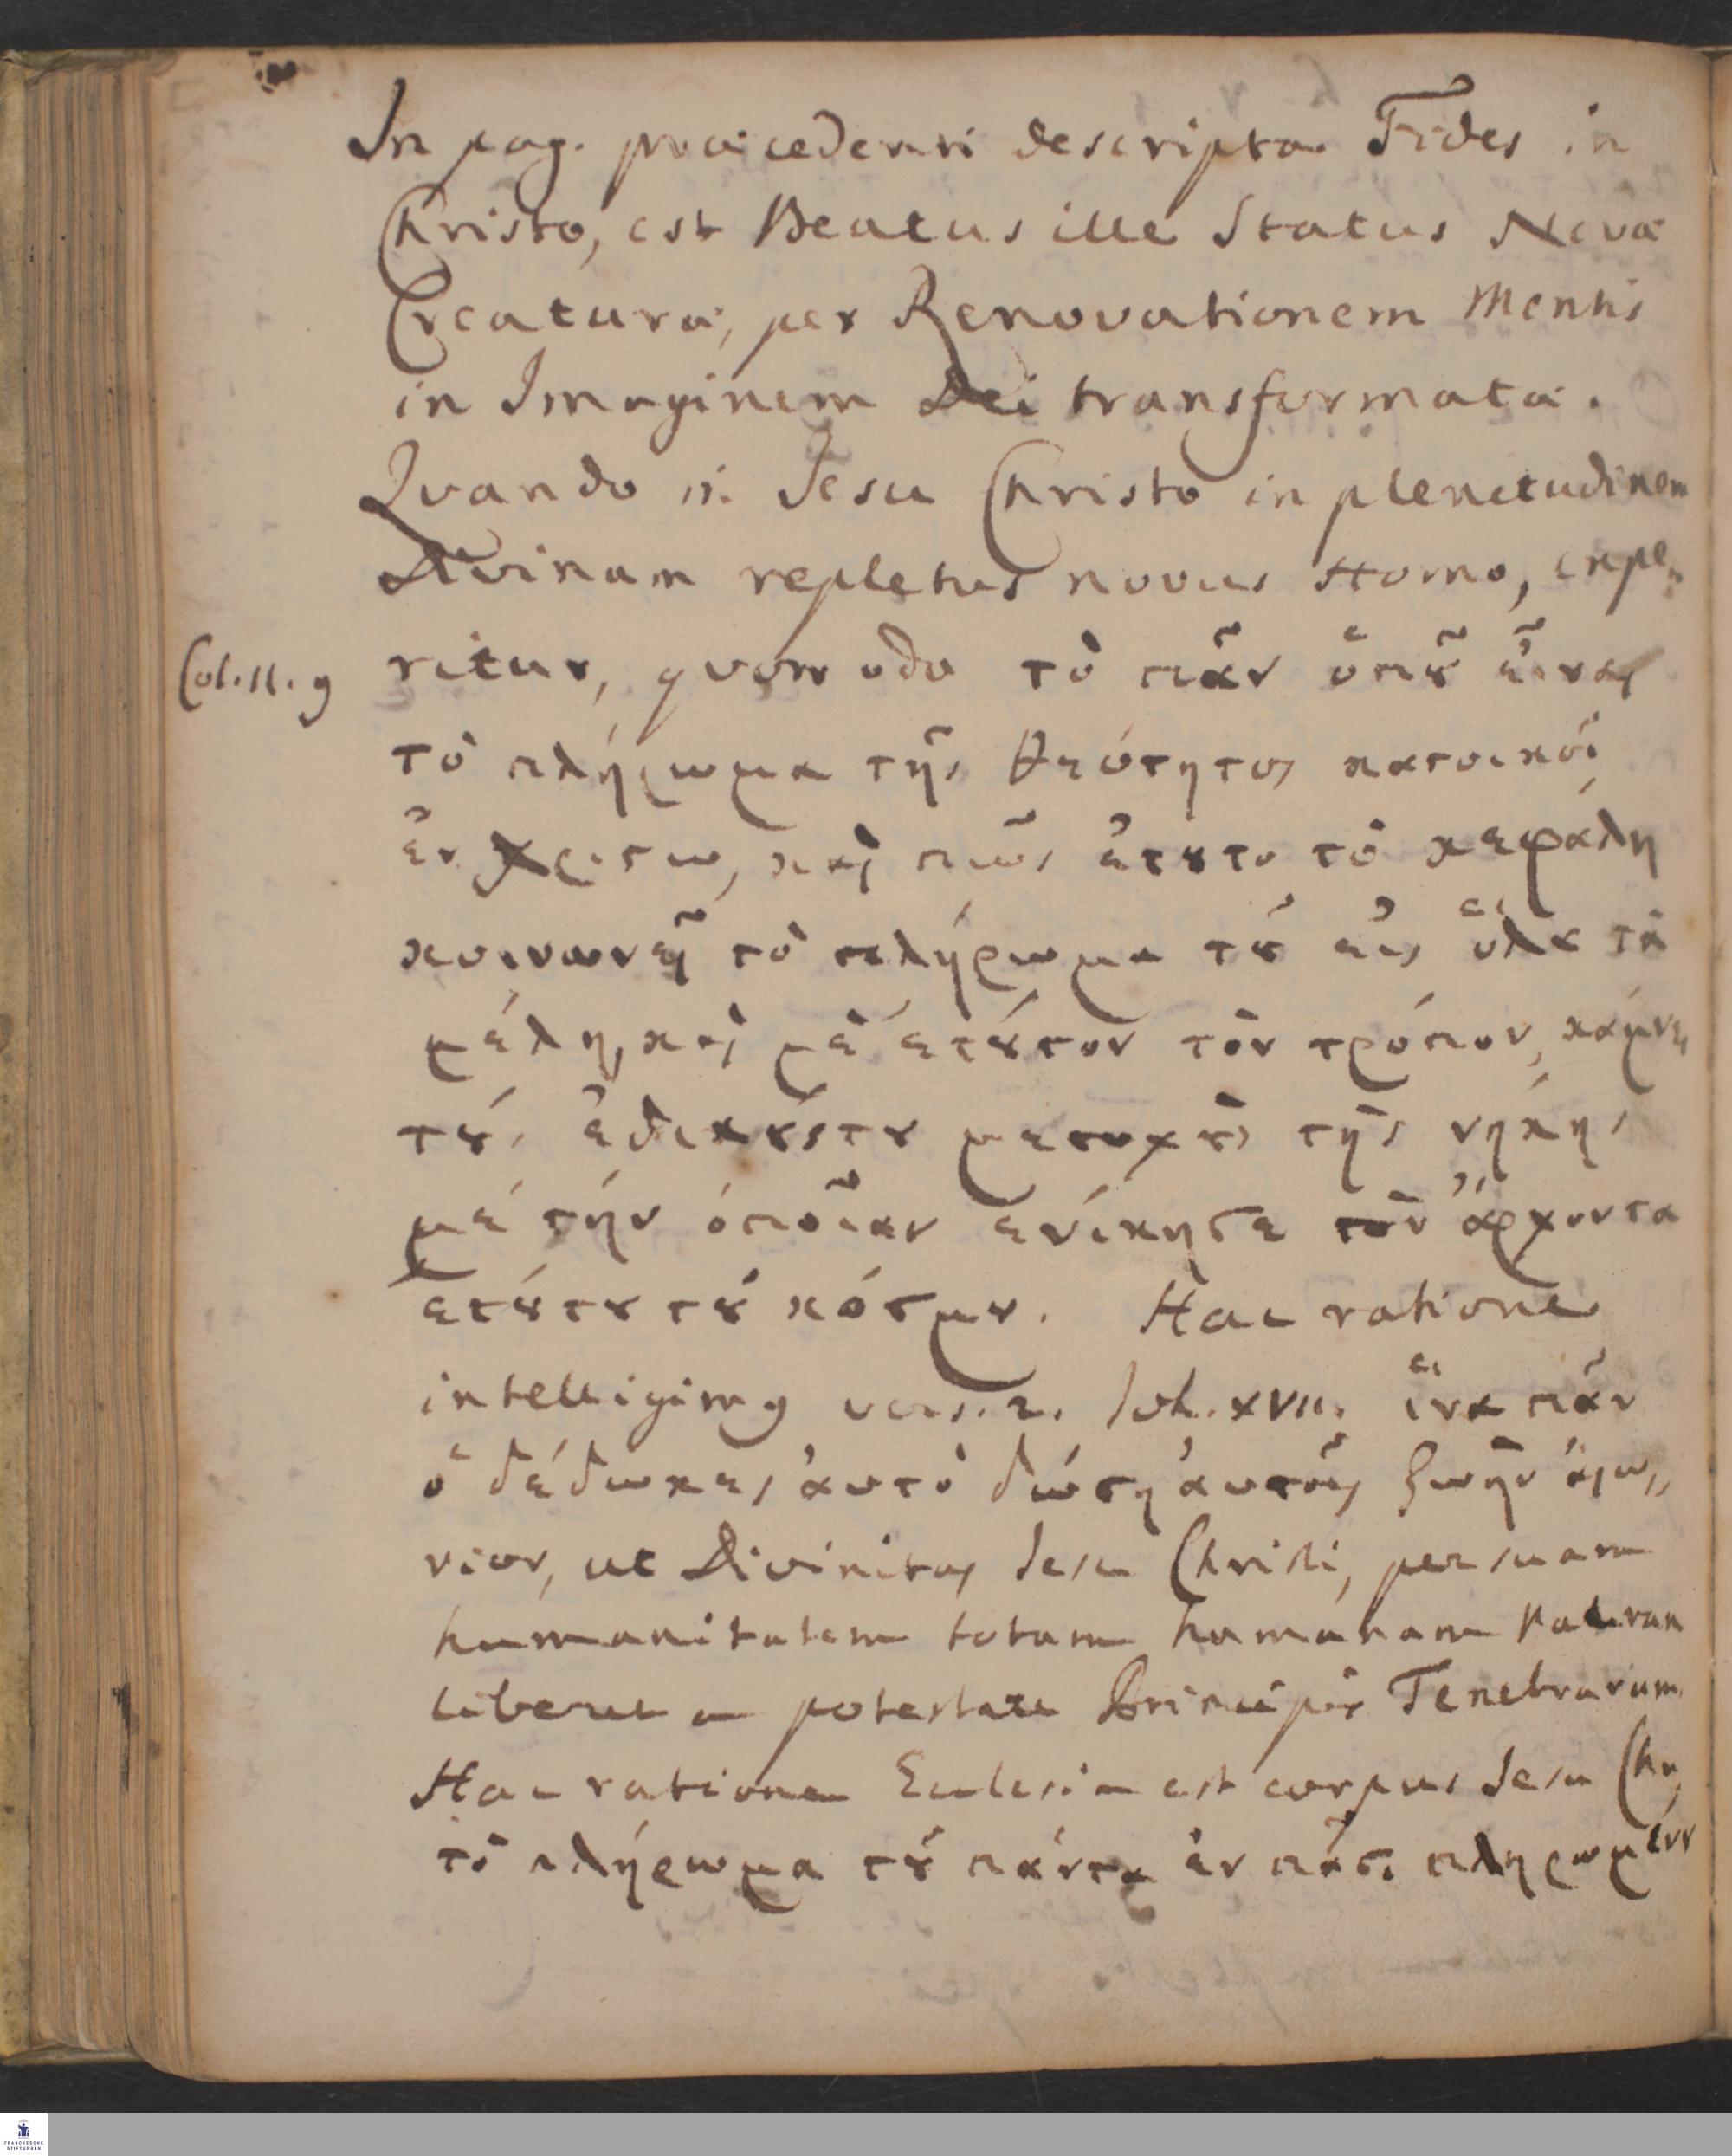 In pag. præcedenti descripta Fides in
Christo, est Beatus ille Status Novæ
Creaturæ, per Renovationem Mentis
in Imaginem Dei transformatæ.
Quando n. Jesu Christo in plenitudinem
Divinam repletus novus Homo, expe„
Col. II. 9 ritur, quomodo τὸ πᾶν ὁπȣ͂ εἶναι
τὸ πλήρωμα τῆς θεότητος κατοικεῖ
ἐν Χριστω, καὶ πῶς ἐτȣτο τὸ κεφάλη
κοινωνεῖ τὸ πλήρωμα τȣ́ εἰς ὅλα τὰ
μέλη, καὶ μὲ ἐτȣ́τον τὸν τρόπον, κάμνει
τȣ́ς ἐδικȣ́ς τȣ μετοχȣ̀ς τῆς νήκης
μέ τήν ὁποῖαν ενίκησε τὸν ἄρχοντα
ετȣ́τȣ τȣ͂ κόσμȣ. Hac ratione
intelligimus vers. 2. Joh. XVII. ἵνα πᾶν
ὁ δέδωκες ἀυτὸ δώση ἀυτοῖς ζωὴν ἀιω„
νιον, ut Divinitas Jesu Christi, per suam
humanitatem totam humanam naturam
liberet a potestate Principis Tenebrarum.
Hac ratione Ecclesia est corpus Jesu Chri
τὸ πλήρωμα τȣ͂ πάντα ἐν πᾶσι πληρωμένȣ
FRANCKESCHE
STIFTUNGEN